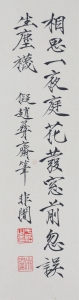 相思一夜庭花發窓前忽誤
生塵襪 假趙彝齋筆 非闇